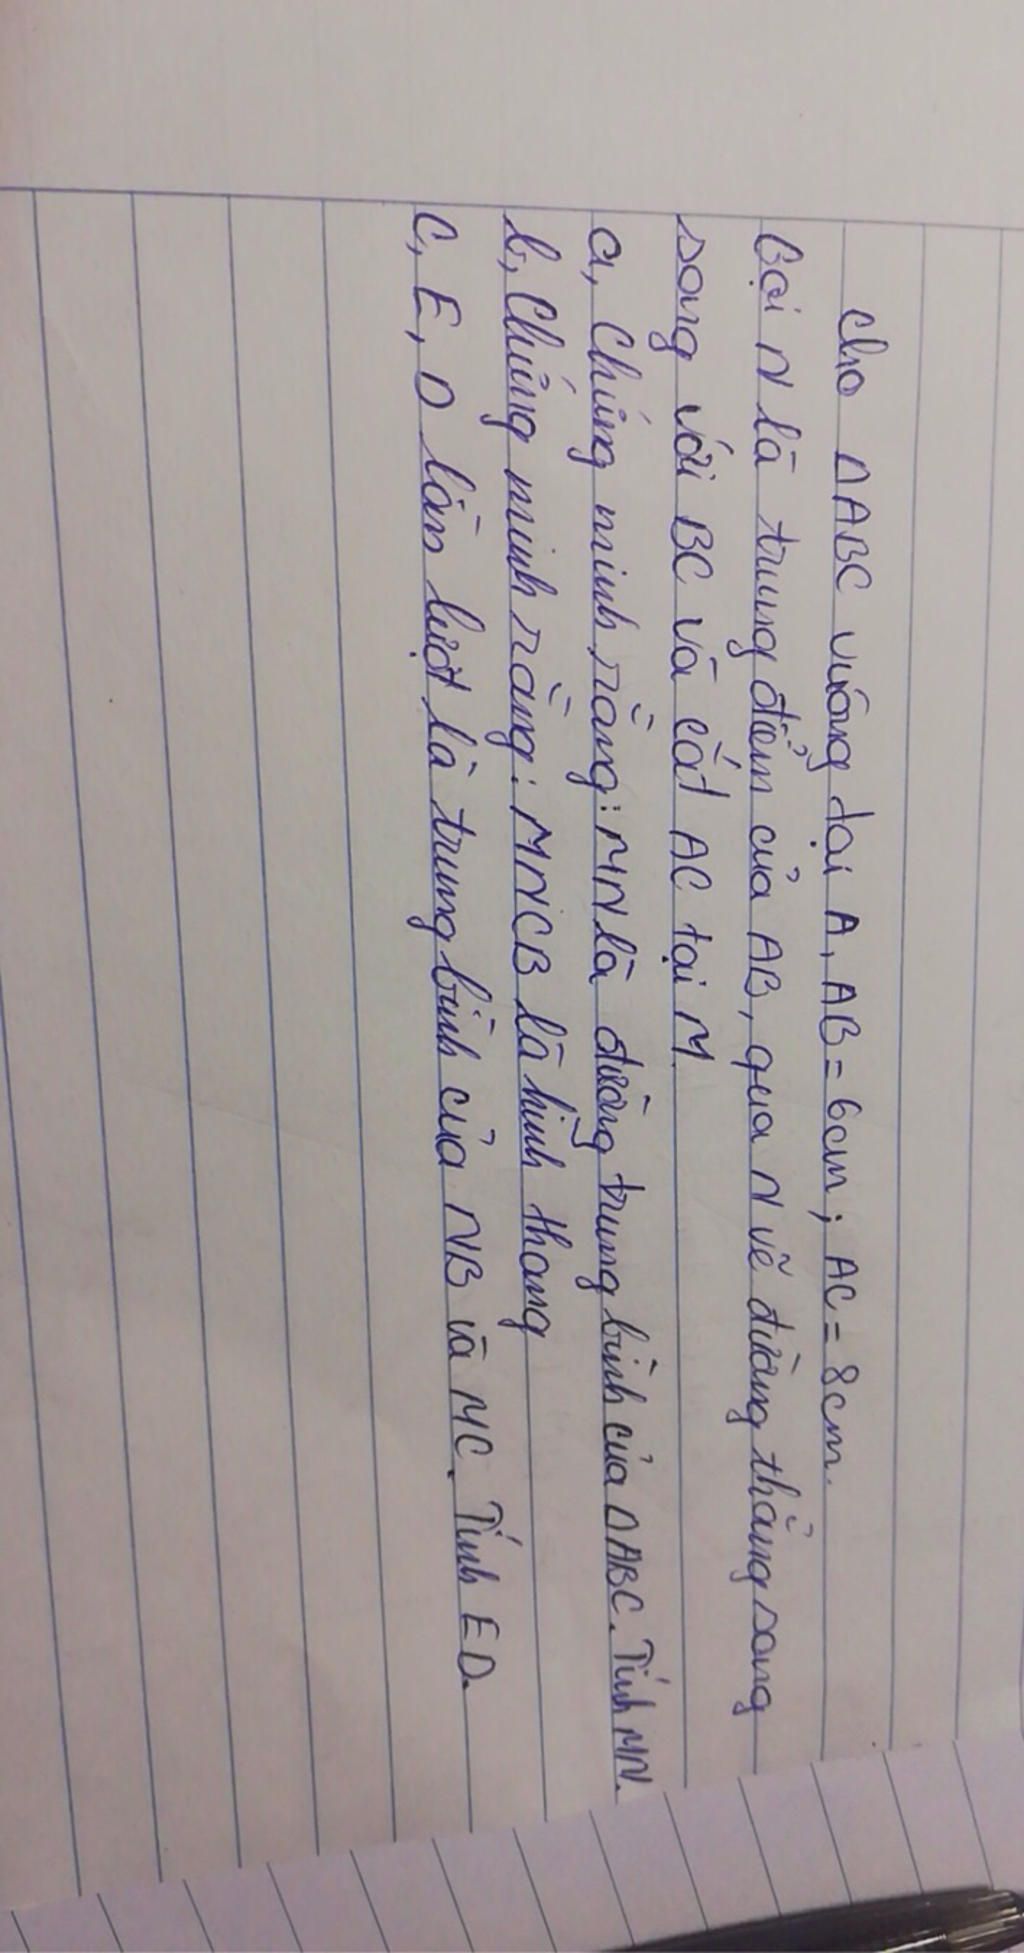 Cho ΔABC vuông tại A, AB = 6cm; AC = 8cm.
Gọi N là trung điểm của AB, qua N vẽ đường thẳng song
song với BC và cắt AC tại M
a, Chứng minh rằng: MN là đường trung bình của ΔABC. Tính MN.
b, Chứng minh rằng: MNCB là hình thang
c, E, D lần lượt là trung bình của NB và MC. Tính ED.